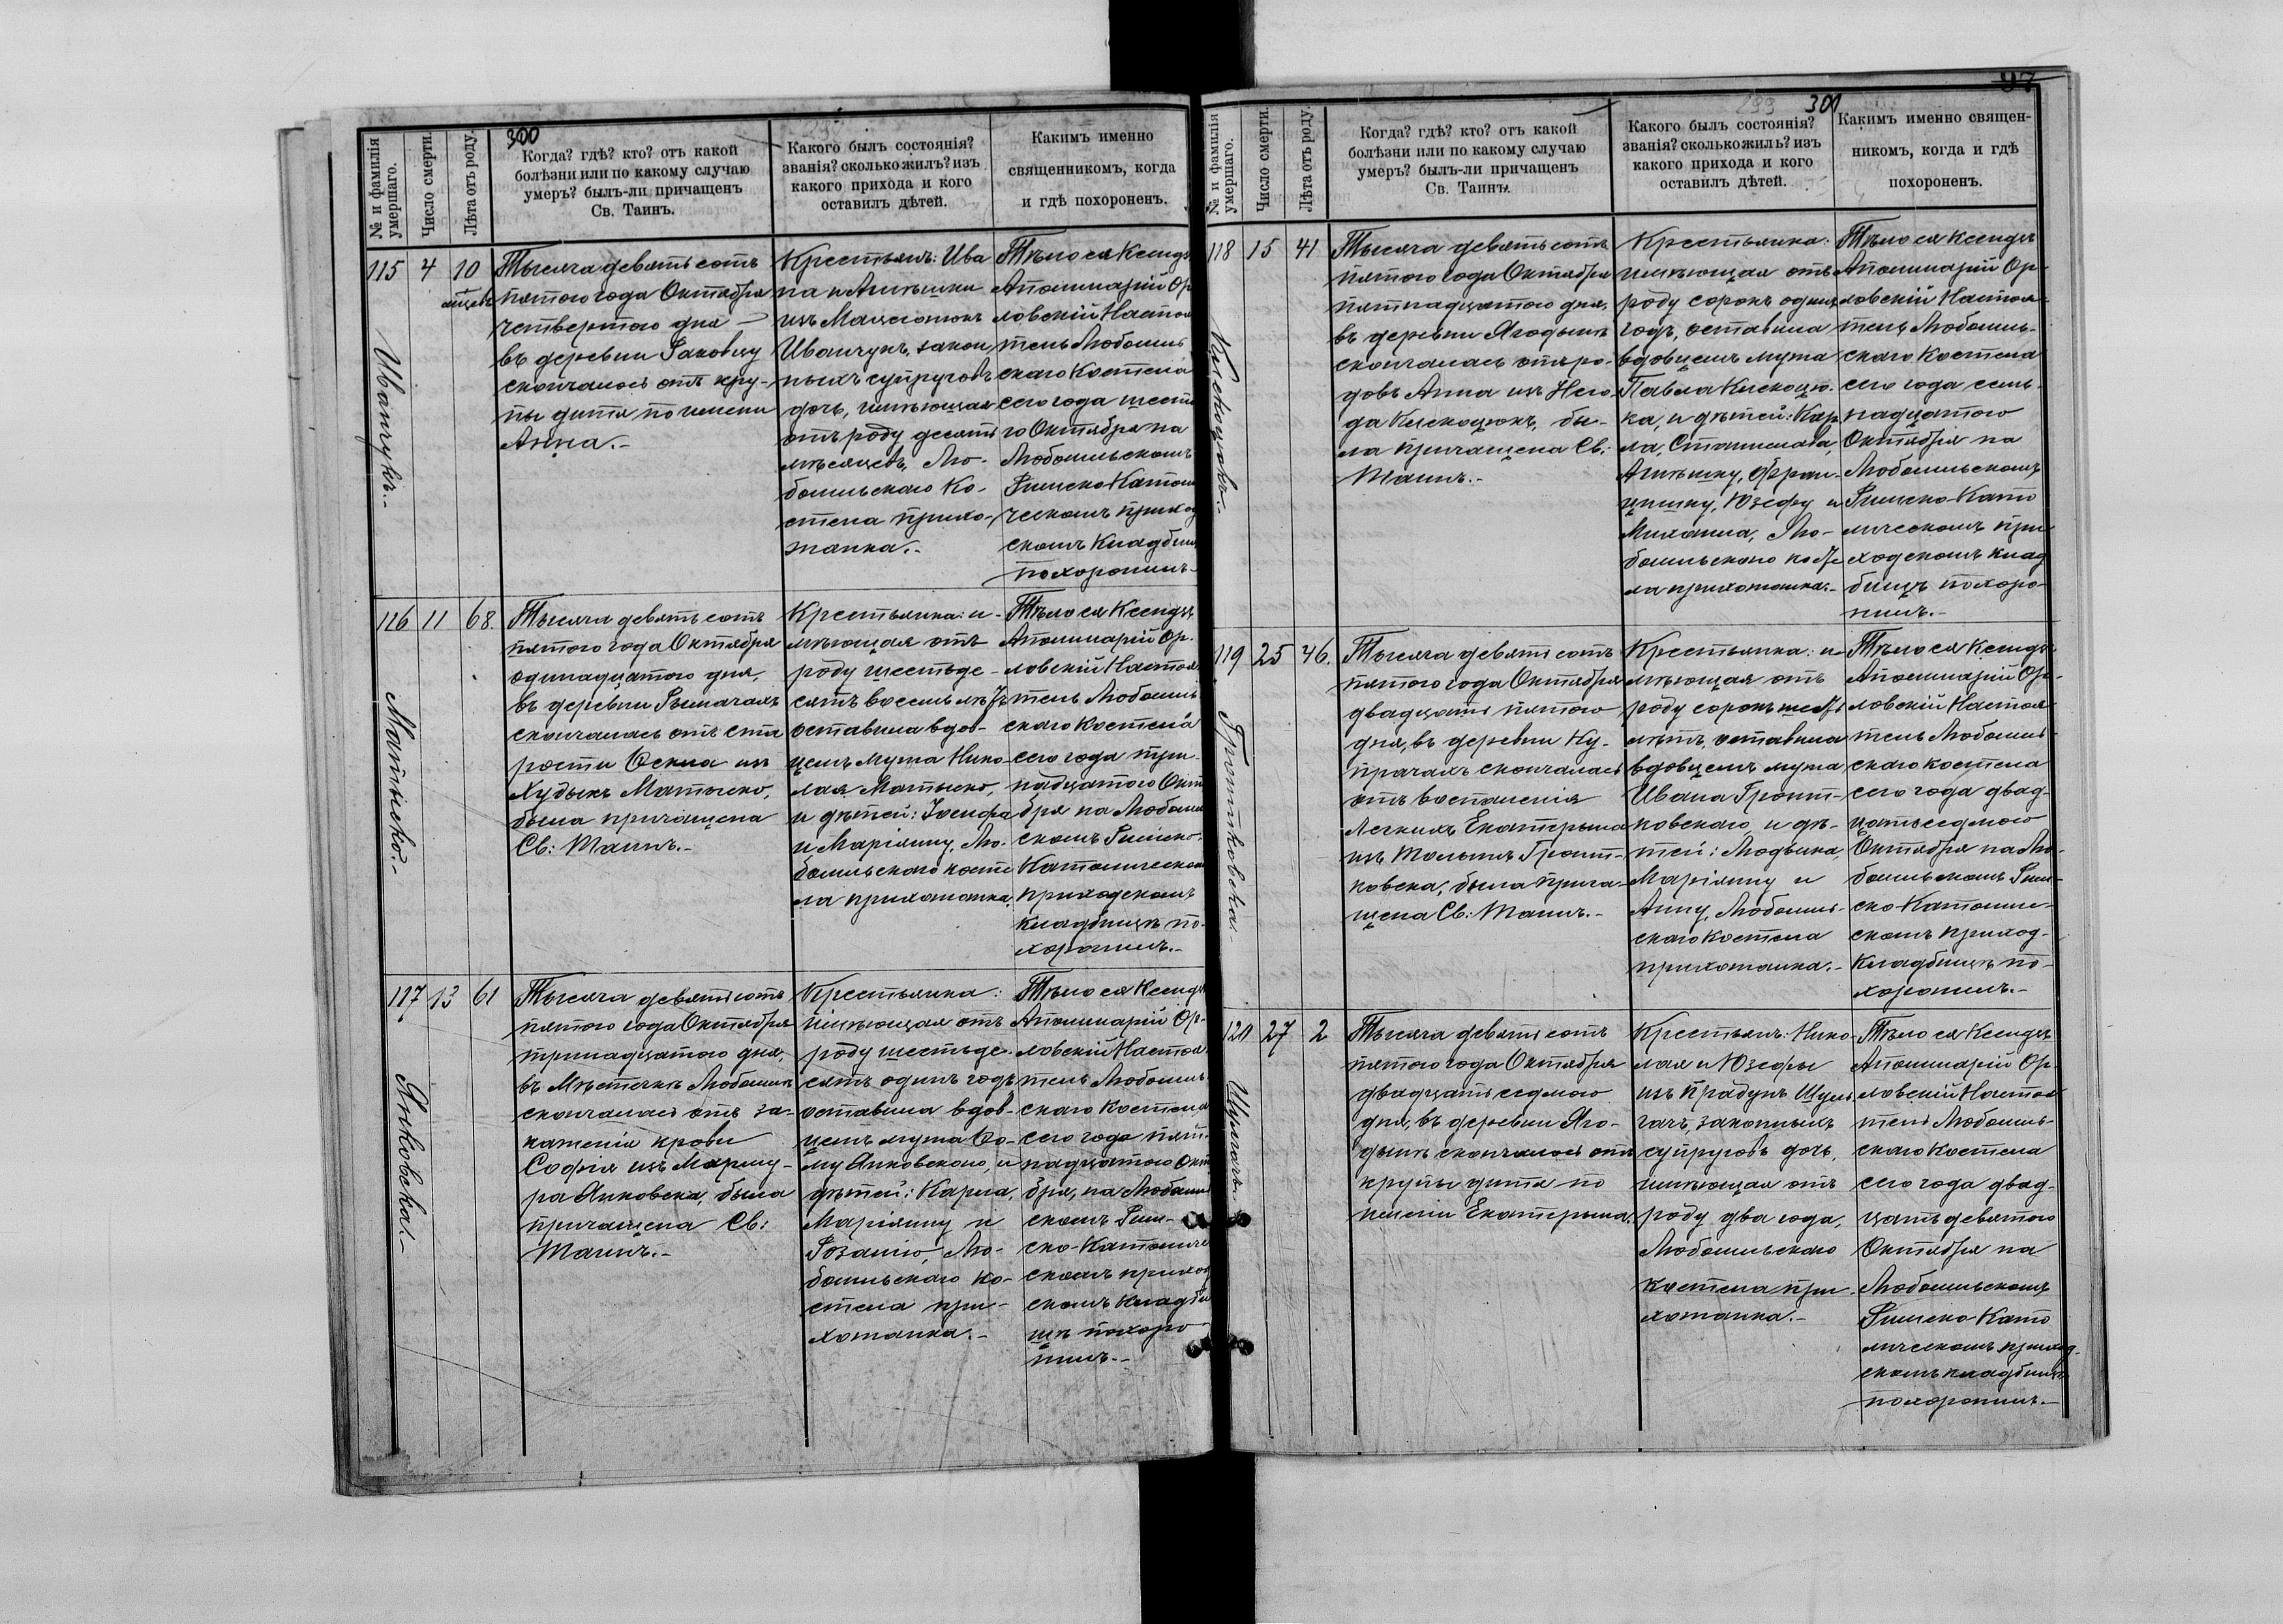 300
№ и фамилія умершаго.
Число смерти.
Лѣта отъ роду.
Когда? гдѣ? кто? отъ какой
болѣзни или по какому случаю
умеръ? былъ-ли причащенъ
Св. Таинъ.
Какого былъ состоянія?
званія? сколько жилъ? изъ
какого прихода и кого
оставилъ дѣтей.
Какимъ именно
священникомъ, когда
и гдѣ похороненъ.
115
Иванчукъ.-
4
10
Тысяча девятьсотъ
пятого года Октября
четвертого дня —
въ деревни
скончалось отъ кру-
пы дитя по имени
Анна.-
Крестьянъ: Ива
на и Агнѣшки
изъ
Иванчукъ, закон
ныхъ супруговъ
дочь, имѣющая
отъ роду десять
мѣсяцевъ, Лю-
бомльскаго Ко-
стела прихо-
жанка.-
Тѣло ея Ксендзъ
Аполинарій Ор
ловскій Настоя
тель Любомль
скаго Костела
сего года шесто
го Октября на
Любомльскомъ
Римско Католи
ческомъ приход
скомъ Кладбищ
похоронилъ.-
116
Матысько.-
11
68.
Тысяча девятьсотъ
пятого года Октября
одинадцатого дня,
въ деревни Рымачахъ
скончалась отъ ста
рости Ѳекла изъ
Худыкъ Матысько,
была причащена
Св: Таинъ.-
Крестьянка: и-
мѣющая отъ
роду шестьде-
сятъ восемь лѣтъ
оставила вдов-
цемъ мужа Нико-
лая Матысько,
и дѣтей: Іосифа
и Маріянну, Лю-
бомльскаго косте
ла прихожанка.
Тѣло ея Ксендзъ
Аполинарій Ор-
ловскій Настоя
тель Любомль
скаго Костела
сего года три-
надцатого Октя
бря на Любомль
скомъ Римско-
Католическом
приходскомъ
кладбищѣ по-
хоронилъ.-
117
Янковска.-
13
61
Тысяча девятьсотъ
пятого года Октября
тринадцатого дня,
въ Мѣстечкѣ Любомлѣ
скончалась отъ за-
каженія крови
Софія изъ
Янковска, была
причащена Св:
Таинъ.-
Крестьянка:
имѣющая отъ
роду шестьде-
сятъ одинъ годъ
оставила вдов-
цемъ мужа Ѳо-
му Янковского, и
дѣтей: Карла,
Маріянну и
Розалію, Лю-
бомльскаго ко-
стела при-
хожанка.-
Тѣло ея Ксендз
Аполинарій Ор-
ловскій Настоя
тель Любомль-
скаго Костела
сего года пят-
надцатого Октя
бря, на Любомль
скомъ Рим-
ско-Католиче
скомъ приход
скомъ Кладби
щѣ похоро
нилъ.-
97
301
№ и фамилія умершаго.
Число смерти.
Лѣта отъ роду.
Когда? гдѣ? кто? отъ какой
болѣзни или по какому случаю
умеръ? былъ-ли причащенъ
Св. Таинъ.
Какого былъ состоянія?
званія? сколько жилъ? изъ
какого прихода и кого
оставилъ дѣтей.
Какимъ именно священ-
никомъ, когда и гдѣ
похороненъ.
118
15
41
Тысяча девятьсотъ
пятого года Октября
пятнадцатого дня,
въ деревни Ягодынѣ
скончалась отъ ро-
довъ Анна изъ
бы-
ла причащена Св:
Таинъ.-
Крестьянка:
имѣющая отъ
роду сорокъ одинъ
годъ, оставила
вдовцемъ мужа
Павла
и дѣтей: Кар
ла, Станислава,
Агнѣшку, Фран-
цишку, Юзефу и
Михаила, Лю-
бомльскаго косте
ла прихожанка.-
Тѣло ея Ксендзъ
Аполинарій Ор-
ловскій Настоя-
тель Любомль-
скаго Костела
сего года семь-
надцатого
Октября на
Любомльскомъ
Римско-Като
лическомъ при
ходскомъ клад
бищѣ похоро-
нилъ.-
119
25
46.
Тысяча девятьсотъ
пятого года Октября
двадцать пятого
дня, въ деревни Ку-
прачахъ скончалась
отъ воспаленія
Легкихъ Екатерина
изъ
была прича-
щена Св: Таинъ.-
Крестьянка: и
мѣющая отъ
роду сорокъ шесть
лѣтъ, оставила
вдовцемъ мужа
Ивана
и дѣ-
тей: Людвика,
Маріянну и
Анну, Любомль-
скаго Костела
прихожанка.-
Тѣло ея Ксендзъ
Аполинарій Ор-
ловскій Настоя-
тель Любомль-
скаго костела
сего года двад-
цатьседмого
Октября на Лю-
бомльскомъ Рим-
ско-Католиче-
скомъ приход-
кладбищѣ по-
хоронилъ.-
120
27
2
Тысяча девятьсотъ
пятого года Октября
двадцать седмого
дня, въ деревни Яго-
дынѣ скончалось отъ
крупы дитя по
имени Екатерина.
Крестьянъ: Нико-
лая и Юзефы
изъ
законныхъ
супруговъ дочь,
имѣющая отъ
роду два года,
Любомльскаго
костела при-
хожанка.-
Тѣло ея Ксендзъ
Аполинарій Ор-
ловскій Настоя
тель Любомль-
скаго Костела
сего года двад-
цатьдевятого
Октября на
Любомльскомъ
Римско-Като
лическомъ приход-
скомъ кладбищѣ
похоронилъ.-